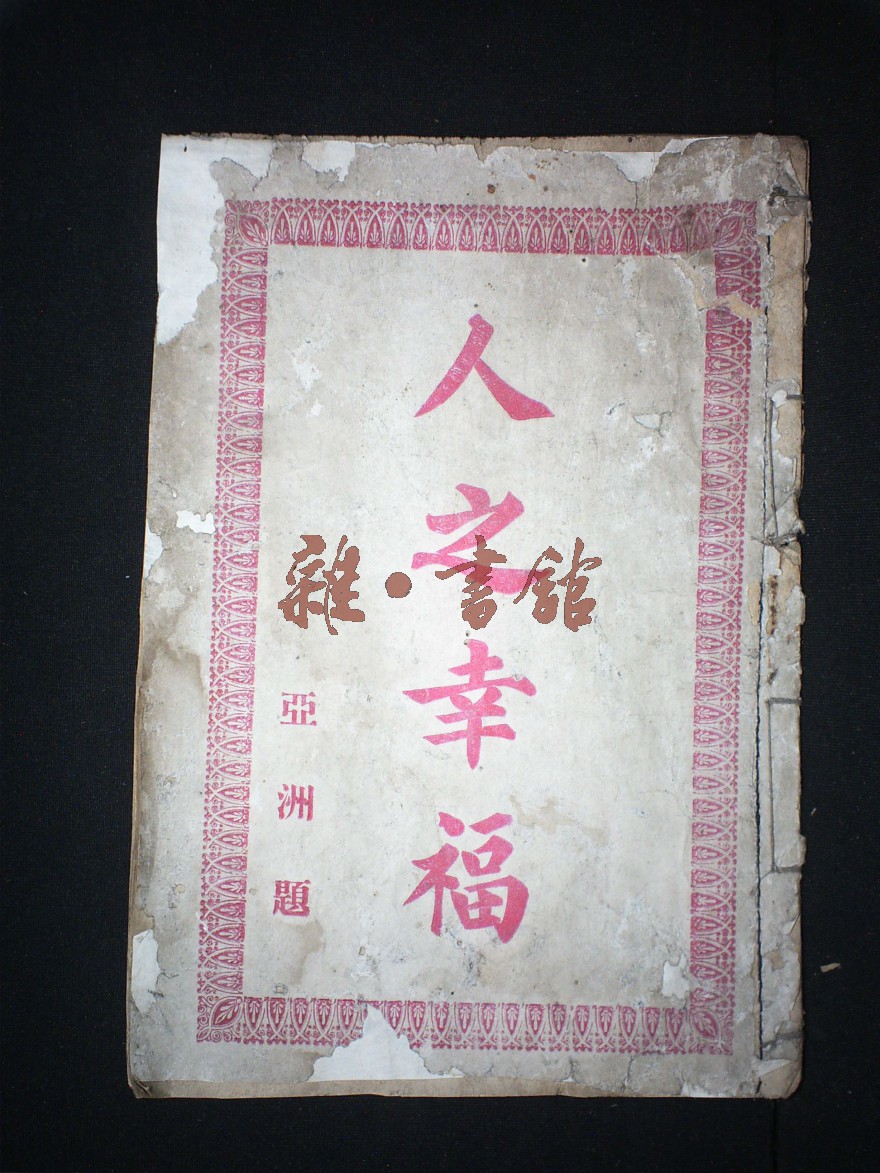 人之幸福
亞洲題
雜·書館